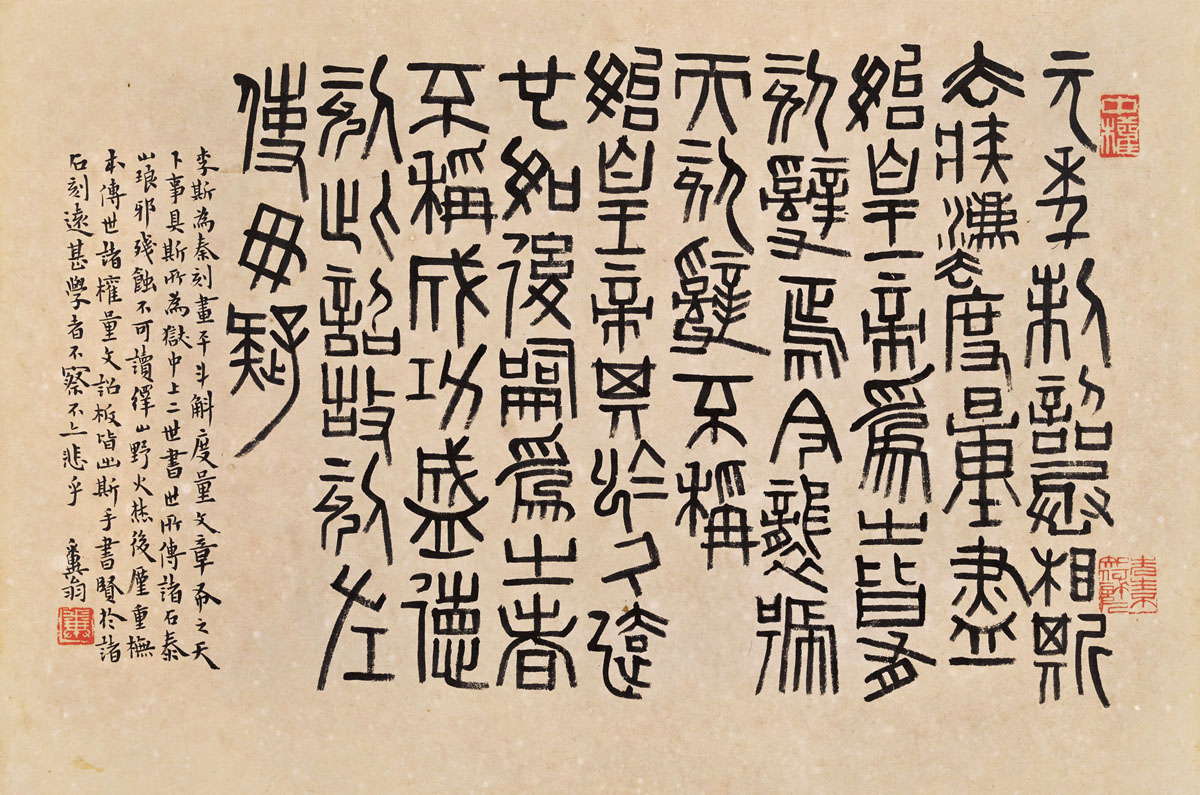 元年制詔丞相斯
去疾灋度量盡
始皇帝為之皆有
刻辭焉今襲號
而刻辭不稱
始皇帝其於久遠
也如後嗣為之者
不稱成功盛德
刻此詔故刻左
使毋疑
李斯為秦刻畫平斗斛度量文章布之天
下事具斯所為獄中上二世書世所傳諸石泰
山琅邪殘蝕不可讀繹山野火焦後屢重橅
本傳世諸權量文詔板皆出斯手書賢於諸
石刻遠甚學者不察不亦悲乎 糞翁